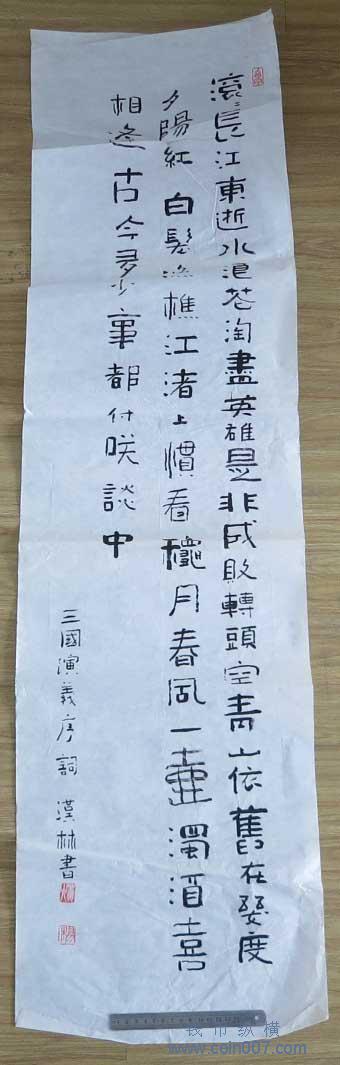 滾々長江東逝水浪花淘盡英雄是非成敗轉頭空青山依舊在幾度
夕陽紅白髮漁樵江渚上慣看穐月春風一壺濁酒喜
相逢古今多少事都付咲談中
三國演義序詞 漢林書
钱币纵横
www.coin007.com